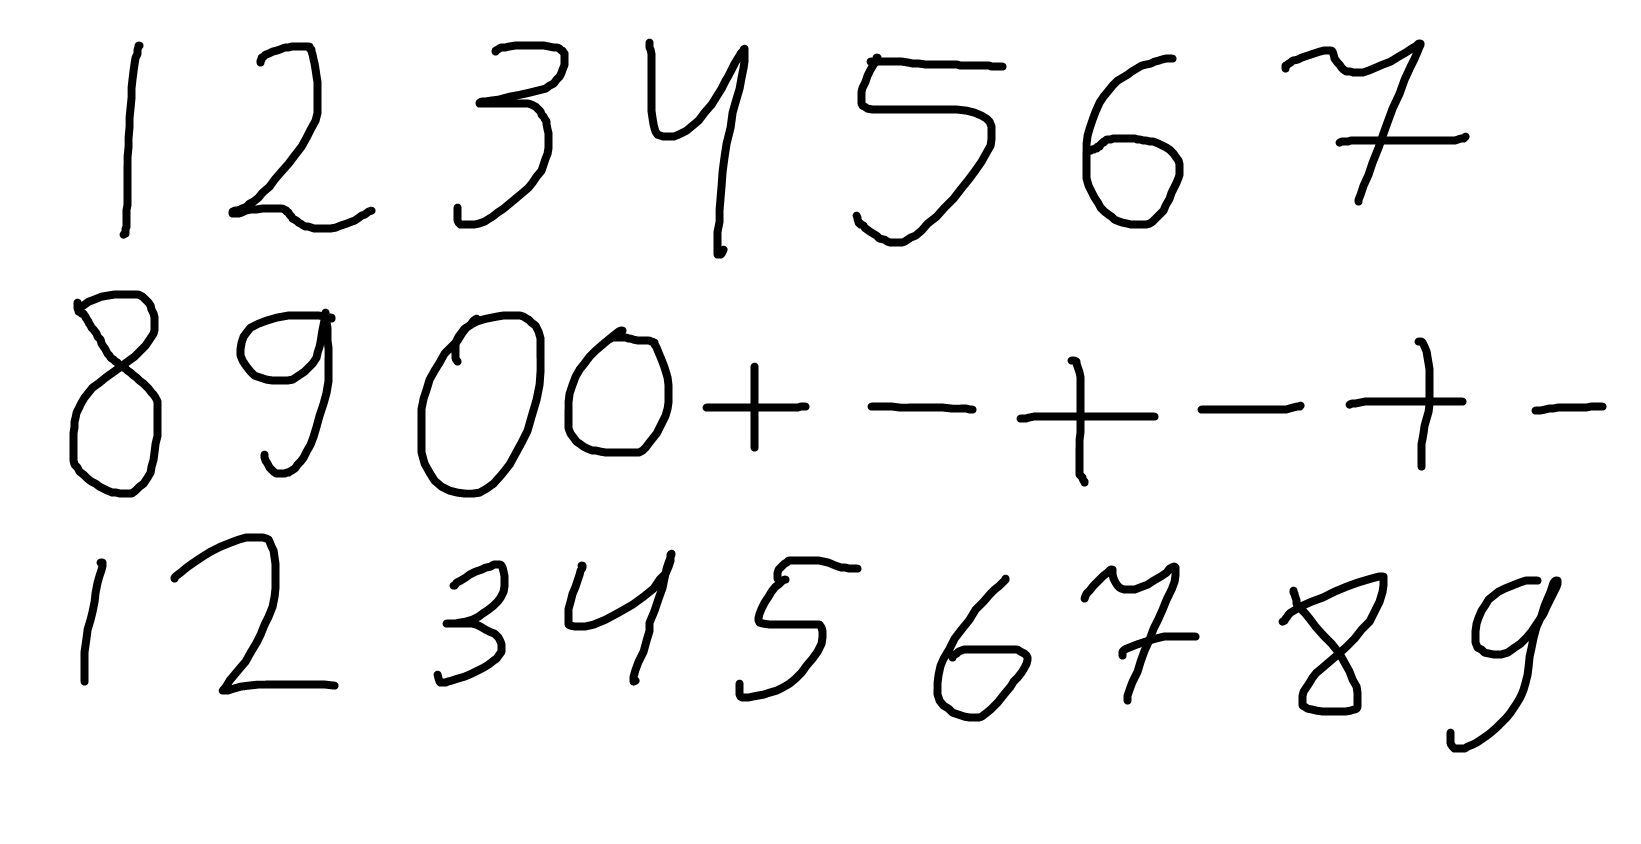 1 2 3 4 5 6 7
8 9 0 0 + - + - + -
1 2 3 4 5 6 7 8 9